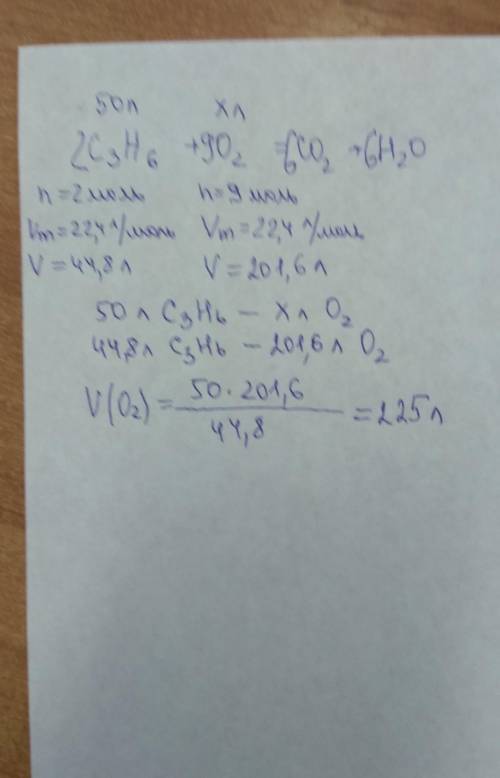 50л xл
2C₃H₆ +9O₂ =6CO₂ +6H₂O
n=2моль n=9моль
Vm=22,4л/моль Vm=22,4л/моль
V=44,8л V=201,6л
50л C₃H₆ – xл O₂
44,8л C₃H₆ – 201,6л O₂
V(O₂)= 50·201,6 / 44,8 =225л